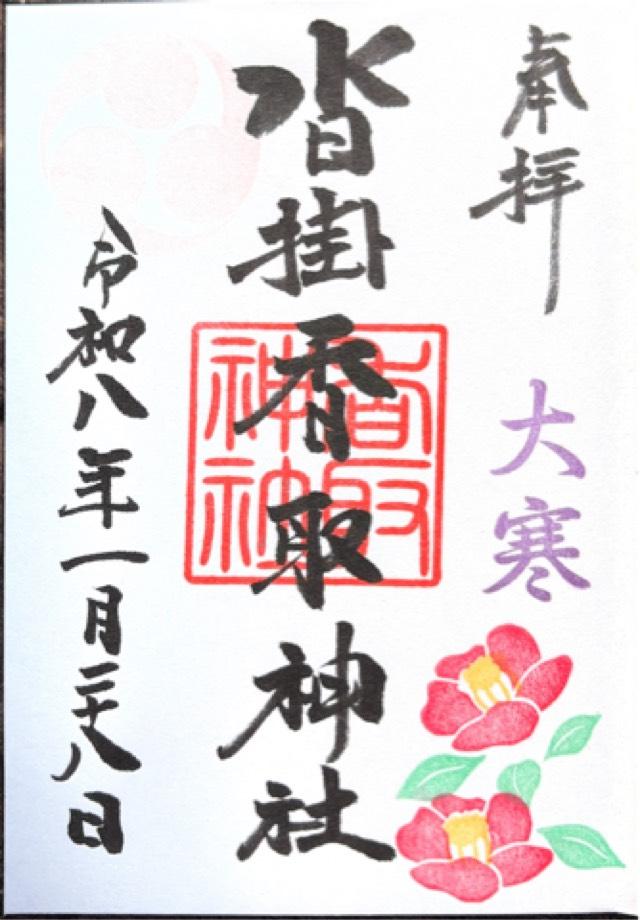 奉拝
大寒
沓掛香取神社
香取
神社
令和八年一月二十八日